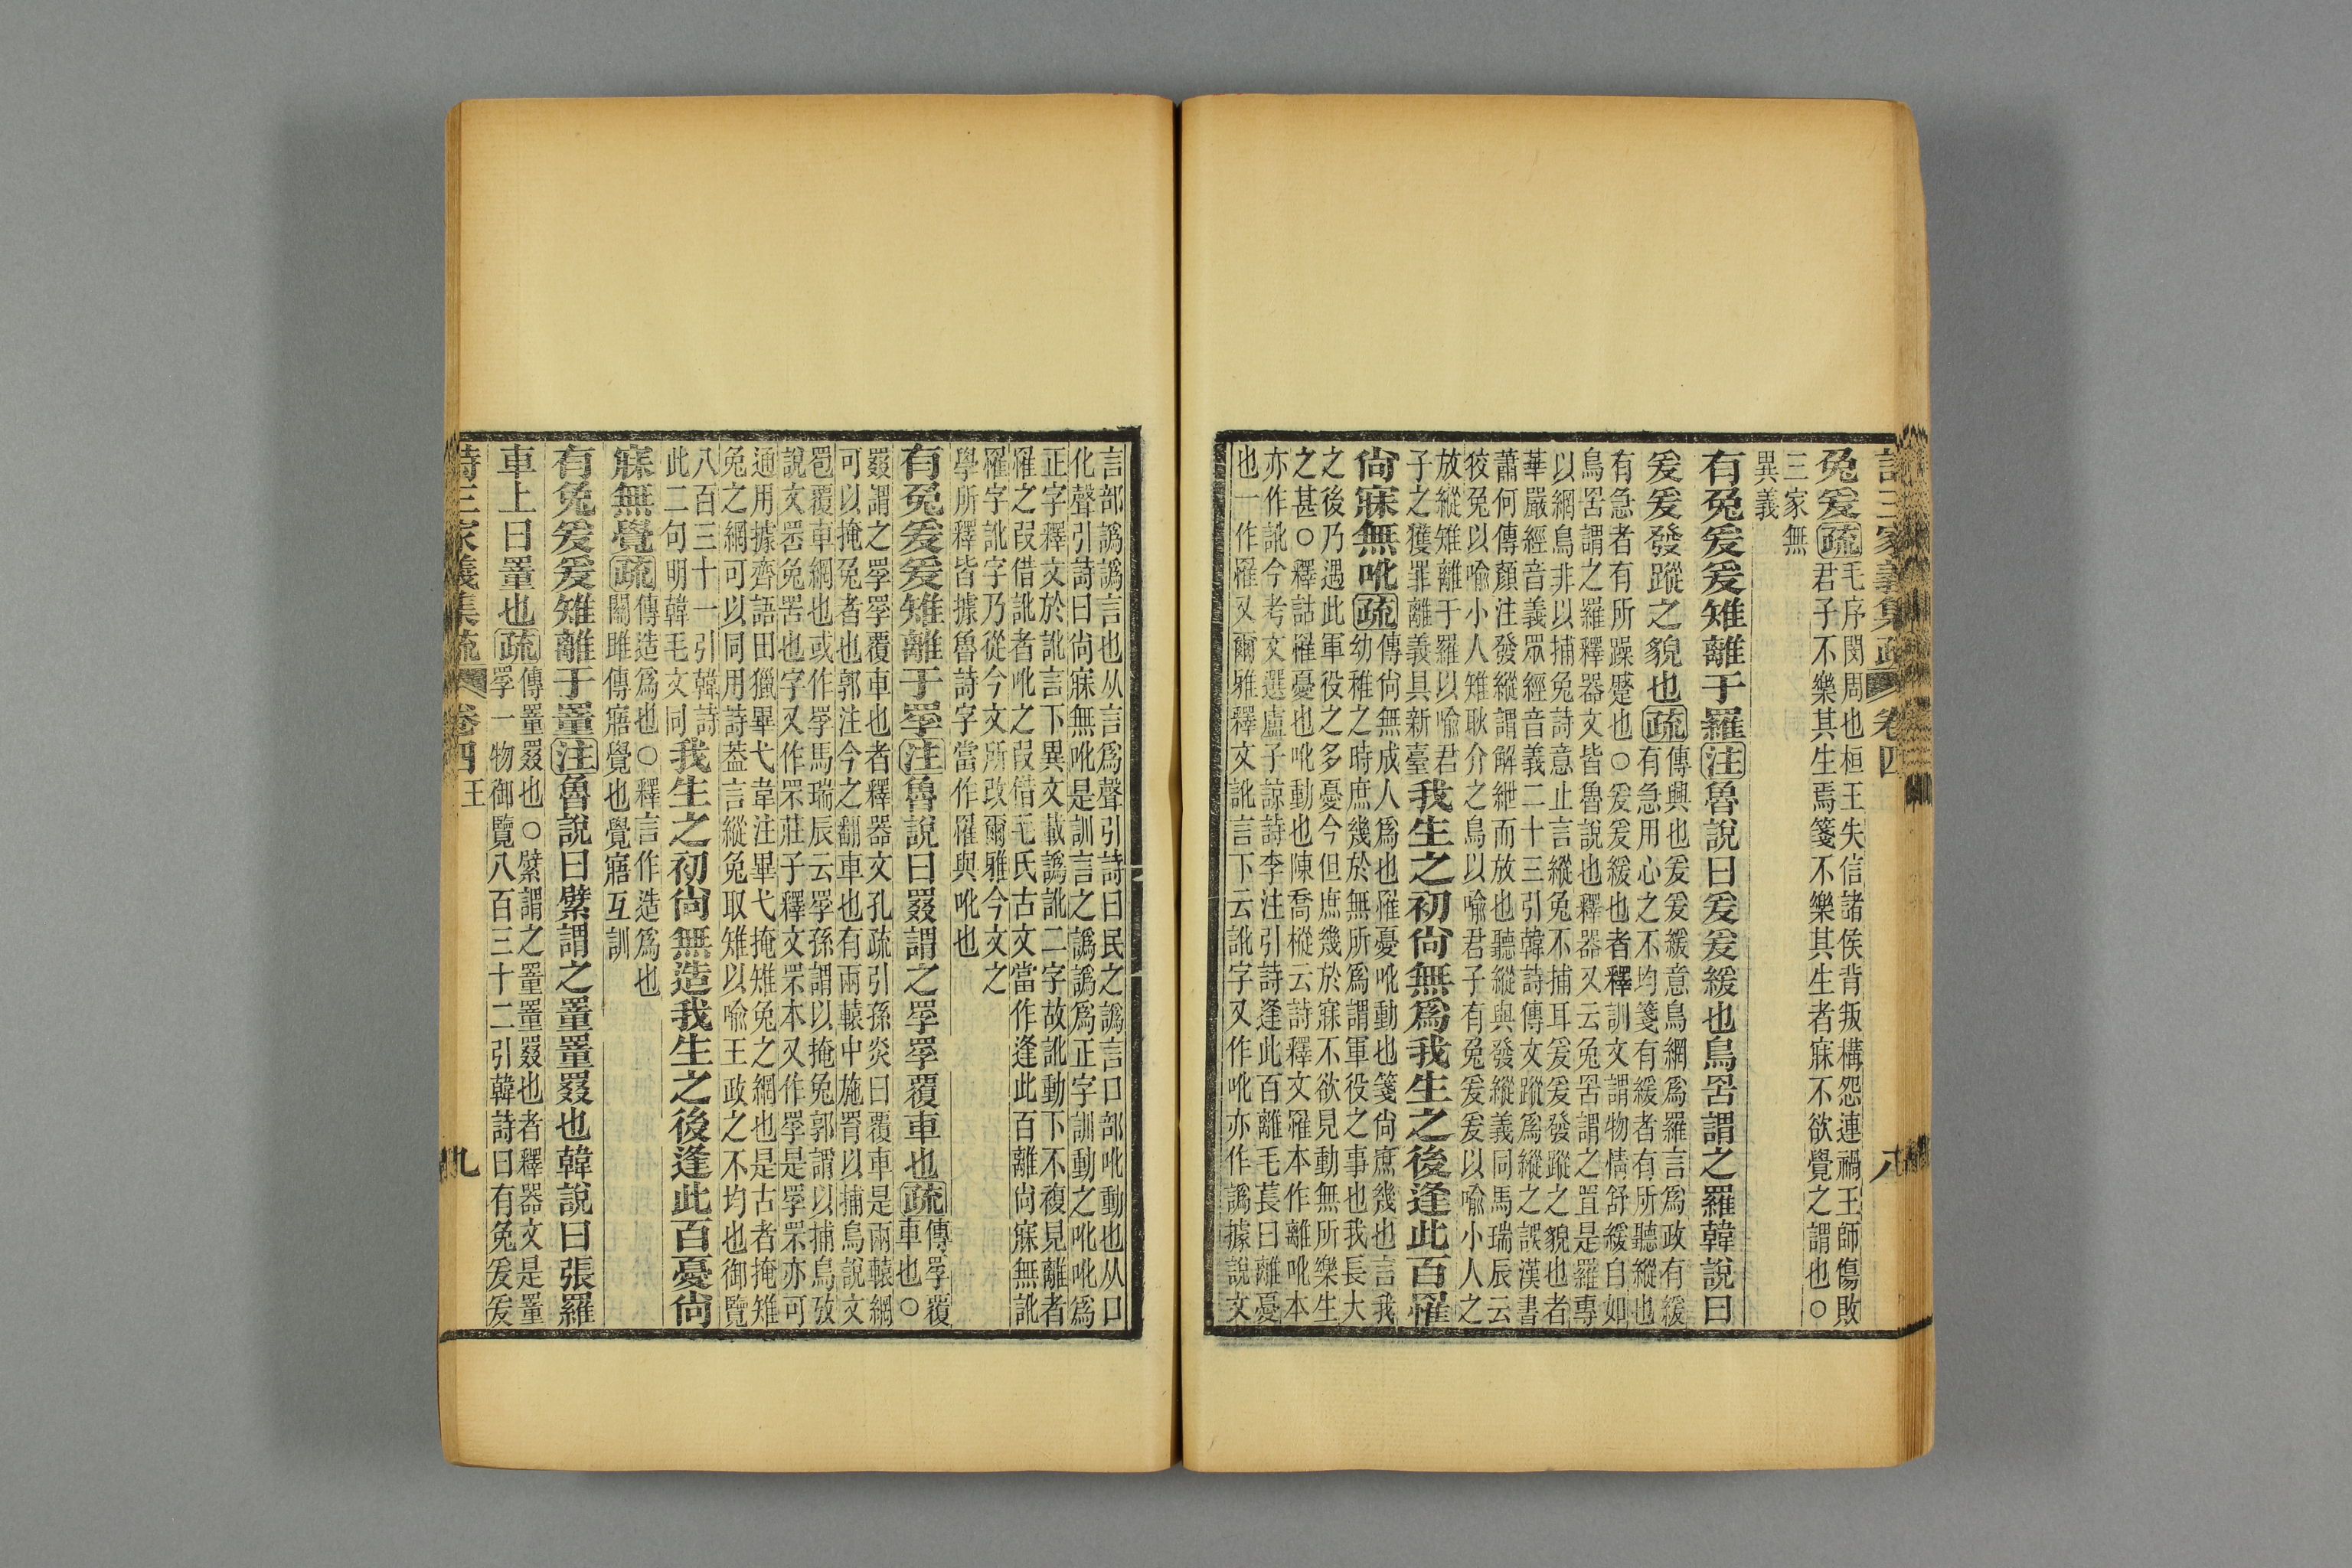 詩三家義集疏 卷四 八
兔爰疏毛序閔周也桓王失信諸侯背叛構怨連禍王師傷敗
君子不樂其生焉箋不樂其生者寐不欲覺之謂也○
三家無
異義
有兔爰爰雉離于羅注魯說曰爰爰緩也鳥罟謂之羅韓說曰
爰爰發蹤之貌也疏傳興也爰爰緩意鳥網爲羅言爲政有緩
有急用心之不均箋有緩者有所聽縱也
有急者有所躁蹙也○爰爰緩也者釋訓文謂物情舒緩自如
鳥罟謂之羅釋器文皆魯說也釋器又云兔罟謂之罝是羅專
以網鳥非以捕兔詩意止言縱兔不捕耳爰爰發蹤之貌也者
華嚴經音義眾經音義二十三引韓詩傳文蹤爲縱之誤漢書
蕭何傳顏注發縱謂解紲而放也聽縱與發縱義同馬瑞辰云
狡兔以喻小人雉耿介之鳥以喻君子有兔爰爰以喻小人之
放縱雉離于羅以喻君
子之獲罪離義具新臺
我生之初尙無爲我生之後逢此百罹
尙寐無吪疏傳尙無成人爲也罹憂吪動也箋尙庶幾也言我
幼稚之時庶幾於無所爲謂軍役之事也我長大
之後乃遇此軍役之多憂今但庶幾於寐不欲見動無所樂生
之甚○釋詁罹憂也吪動也陳喬樅云詩釋文罹本作離吪本
亦作訛今考文選盧子諒詩李注引詩逢此百離毛萇曰離憂
也一作罹又爾雅釋文訛言下云訛字又作吪亦作譌據說文
言部譌譌言也从言爲聲引詩曰民之譌言口部吪動也从口
化聲引詩曰尙寐無吪是訓言之譌譌爲正字訓動之吪吪爲
正字釋文於訛言下異文載譌訛二字故訛動下不複見離者
罹之叚借訛者吪之叚借毛氏古文當作逢此百離尙寐無訛
罹字訛字乃從今文所改爾雅今文之
學所釋皆據魯詩字當作罹與吪也
有兔爰爰雉離于罦注魯說曰罬謂之罦罦覆車也疏傳罦覆
車也○
罬謂之罦罦覆車也者釋器文孔疏引孫炎曰覆車是兩轅網
可以掩兔者也郭注今之翻車也有兩轅中施罥以捕鳥說文
䍖覆車網也或作罦馬瑞辰云罦孫謂以掩兔郭謂以捕鳥攷
說文罘兔罟也字又作罘莊子釋文罘本又作罦是罦罘亦可
通用據齊語田獵畢弋韋注畢弋掩雉兔之網也是古者掩雉
兔之網可以同用詩蓋言縱兔取雉以喻王政之不均也御覽
八百三十一引韓詩
此二句明韓毛文同
我生之初尙無造我生之後逢此百憂尙
寐無覺疏傳造爲也○釋言作造爲也
關雎傳寤覺也覺寤互訓
有兔爰爰雉離于罿注魯說曰繴謂之罿罿罬也韓說曰張羅
車上曰罿也疏傳罿罬也○繴謂之罿罿罬也者釋器文是罿
罦一物御覽八百三十二引韓詩曰有兔爰爰
詩三家義集疏 卷四 王 九